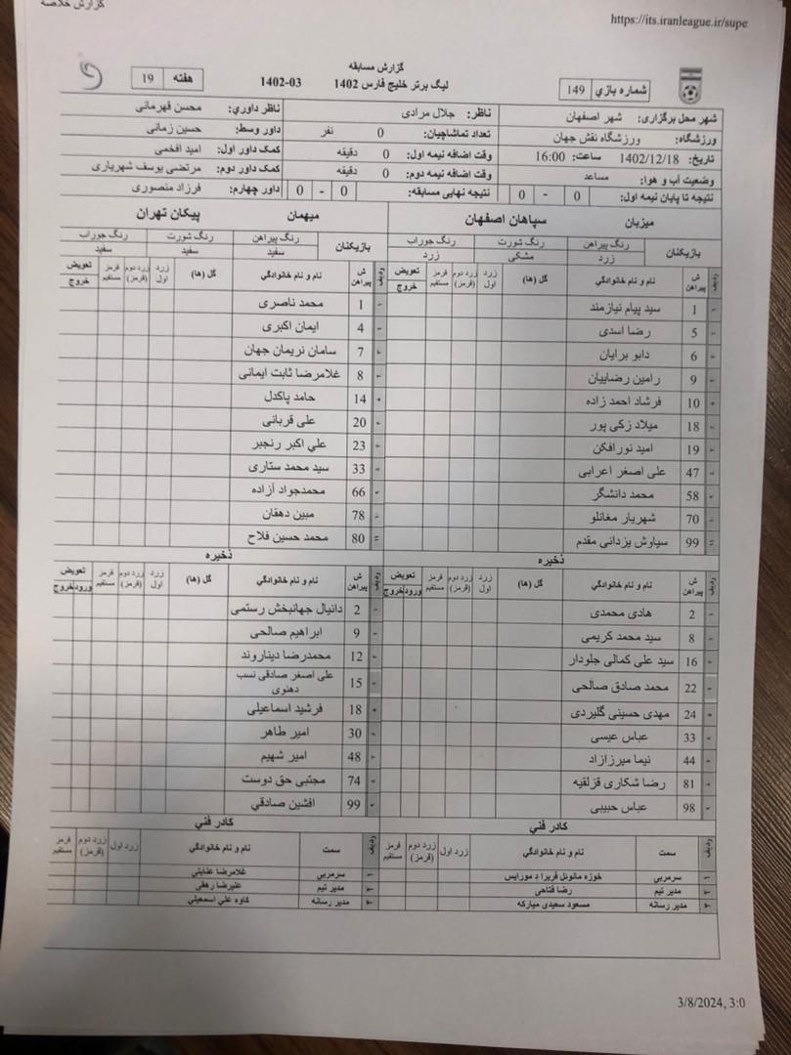 گزارش خلاصه
https://its.iranleague.ir/supe
گزارش مسابقه
شماره بازي 149
لیگ برتر خلیج فارس 1402
1402-03
هفته 19
شهر محل برگزاری: شهر اصفهان
ناظر: جلال مرادی
ناظر داوري: محسن قهرمانی
ورزشگاه: ورزشگاه نقش جهان
تعداد تماشاچیان: 0 نفر
داور وسط: حسین زمانی
تاریخ: 1402/12/18 ساعت: 16:00
وقت اضافه نیمه اول: 0 دقیقه
کمک داور اول: امید افخمی
وضعیت آب و هوا: مساعد
وقت اضافه نیمه دوم: 0 دقیقه
کمک داور دوم: مرتضی یوسف شهریاری
نتیجه تا پایان نیمه اول: 0 - 0
نتیجه نهایی مسابقه: 0 - 0
داور چهارم: فرزاد منصوری
میزبان سپاهان اصفهان
بازیکنان
رنگ پیراهن رنگ شورت رنگ جوراب
زرد مشکی زرد
ردیف ش پیراهن نام و نام خانوادگی گل (ها) زرد اول زرد دوم (قرمز) قرمز مستقیم تعویض خروج
1 سید پیام نیازمند
5 رضا اسدی
6 دابو برایان
9 رامین رضاییان
10 فرشاد احمد زاده
18 میلاد زکی پور
19 امید نورافکن
47 علی اصغر اعرابی
58 محمد دانشگر
70 شهریار مغانلو
99 سیاوش یزدانی مقدم
ذخیره
ردیف ش پیراهن نام و نام خانوادگی گل (ها) زرد اول زرد دوم (قرمز) قرمز مستقیم تعویض ورود خروج
2 هادی محمدی
8 سید محمد کریمی
16 سید علی کمالی جلودار
22 محمد صادق صالحی
24 مهدی حسینی گلیردی
33 عباس عیسی
44 نیما میرزازاد
81 رضا شکاری قزلقیه
98 عباس حبیبی
کادر فني
ردیف سمت نام و نام خانوادگی زرد اول زرد دوم (قرمز) قرمز مستقیم
۱ سرمربی خوزه مانوئل فریرا د مورایس
۲ مدیر تیم رضا فتاحی
۳ مدیر رسانه مسعود سعیدی مبارکه
میهمان پیکان تهران
بازیکنان
رنگ پیراهن رنگ شورت رنگ جوراب
سفید سفید سفید
ردیف ش پیراهن نام و نام خانوادگی گل (ها) زرد اول زرد دوم (قرمز) قرمز مستقیم تعویض خروج
1 محمد ناصری
4 ایمان اکبری
7 سامان نریمان جهان
8 غلامرضا ثابت ایمانی
14 حامد پاکدل
20 علی قربانی
23 علي اکبر رنجبر
33 سید محمد ستاری
66 محمدجواد آزاده
78 مبین دهقان
80 محمد حسین فلاح
ذخیره
ردیف ش پیراهن نام و نام خانوادگی گل (ها) زرد اول زرد دوم (قرمز) قرمز مستقیم تعویض ورود خروج
2 دانیال جهانبخش رستمی
9 ابراهیم صالحی
12 محمدرضا دیناروند
15 علی اصغر صادقی نسب دهنوی
18 فرشید اسماعیلی
30 امیر طاهر
48 امیر شهیم
74 مجتبی حق دوست
99 افشین صادقي
کادر فني
ردیف سمت نام و نام خانوادگی زرد اول زرد دوم (قرمز) قرمز مستقیم
۱ سرمربی غلامرضا عنایتی
۲ مدیر تیم علیرضا رهقی
۳ مدیر رسانه کاوه علي اسمعیلی
3/8/2024, 3:0